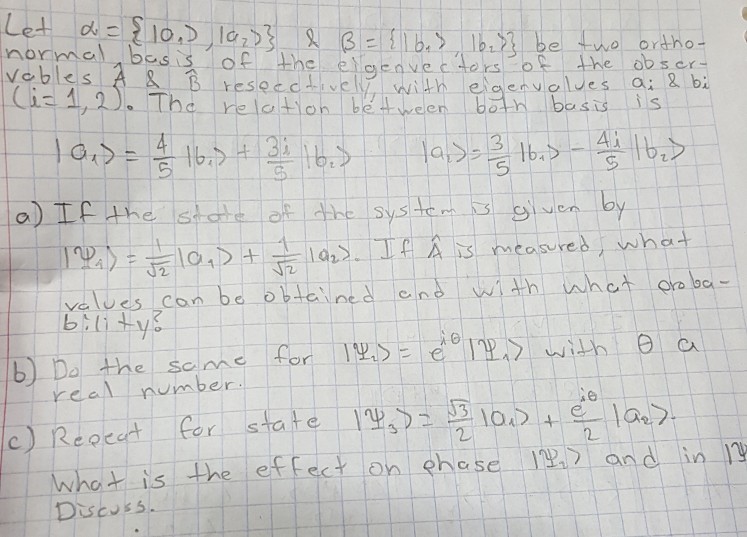 Let α = {|a₁>, |a₂>} & β = {|b₁>, |b₂>} be two ortho-
normal basis of the eigenvectors of the obser-
vables Â & B̂ respectively, with eigenvalues ai & bi
(i=1,2). The relation between both basis is
|a₁> = 4/5 |b₁> + 3i/5 |b₂> |a₂> = 3/5 |b₁> - 4i/5 |b₂>
a) If the state of the system is given by
|Ψ₁> = 1/√2 |a₁> + 1/√2 |a₂>. If Â is measured, what
values can be obtained and with what proba-
bility?
b) Do the same for |Ψ₂> = e^iθ |Ψ₁> with θ a
real number.
c) Repeat for state |Ψ₃> = √3/2 |a₁> + e^iθ/2 |a₂>.
What is the effect on phase |Ψ₂> and in |Ψ
Discuss.